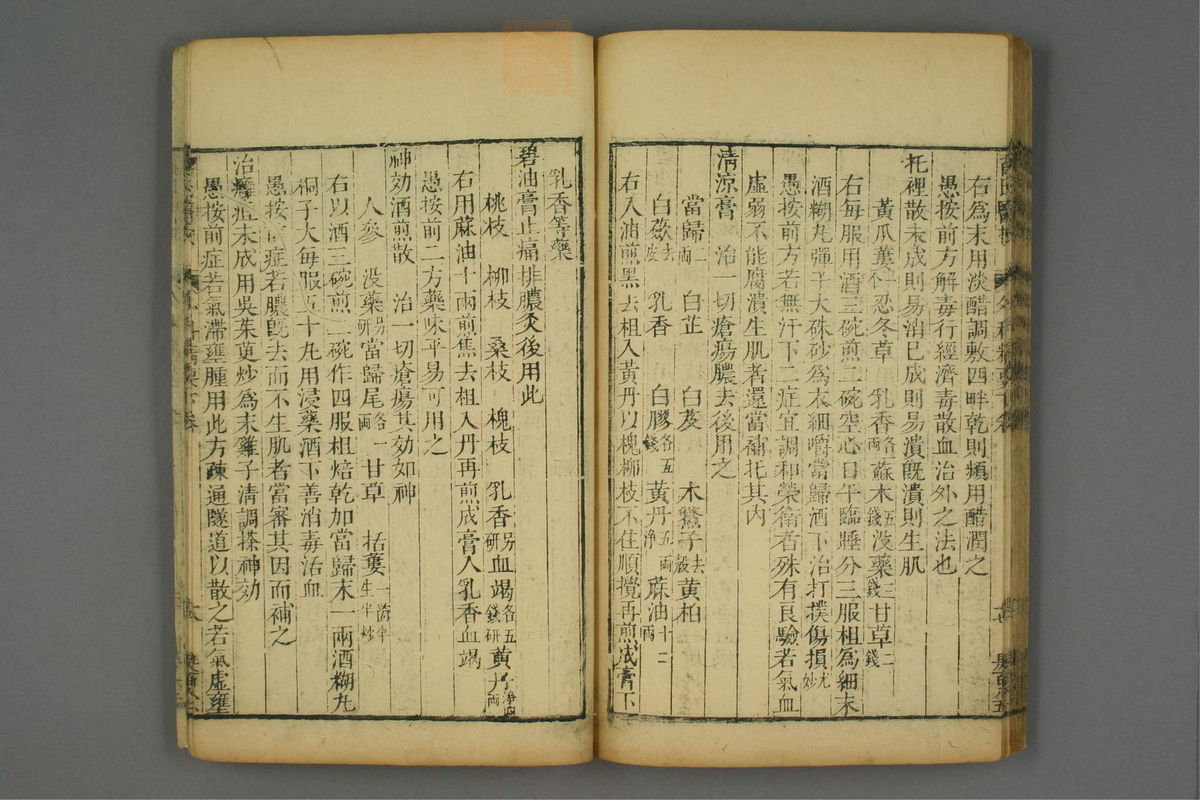 右爲末用淡醋調敷四畔乾則頻用醋潤之
愚按前方解毒行經濟毒散血治外之法也
托裡散未成則易消已成則易潰既潰則生肌
黃瓜蔞一个忍冬草 乳香各一兩蘇木五錢没藥三錢甘草二錢
右每服用酒三碗煎二碗空心日午臨睡分三服柤爲細末
酒糊丸彈子大硃砂爲衣細嚼當歸酒下治打撲傷損尤妙
愚按前方若無汗下二症宜調和榮衛者殊有良驗若氣血
虛弱不能腐潰生肌者還當補托其內
清涼膏 治一切瘡瘍膿去後用之
當歸二兩 白芷 白芨 木鱉子去殼黃柏
白蘞去皮 乳香 白膠各五錢 黃丹五兩淨 蘇油十二兩
右入油煎黑去柤入黃丹以槐柳枝不住順攪再煎成膏下
乳香等藥
碧油膏止痛排膿灸後用此
桃枝 柳枝 桑枝 槐枝 乳香另研血竭各五錢研黃丹淨四兩
右用蘇油十兩煎焦去柤入丹再煎成膏入乳香血竭
愚按前二方藥味平易可用之
神効酒煎散 治一切瘡瘍其効如神
人參 没藥另研當歸尾各一兩 甘草 括蔞一箇半生半炒
右以酒三碗煎二碗作四服柤焙乾加當歸末一兩酒糊丸
桐子大每服五十丸用浸藥酒下善消毒活血
愚按前症若膿既去而不生肌者當審其因而補之
治癰疽未成用吳茱萸炒爲末雞子清調搽神効
愚按前症若氣滯壅腫用此方疎通隧道以散之若氣虛壅